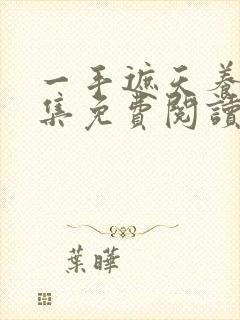 一手遮天養
集免費閱讀
葉曄